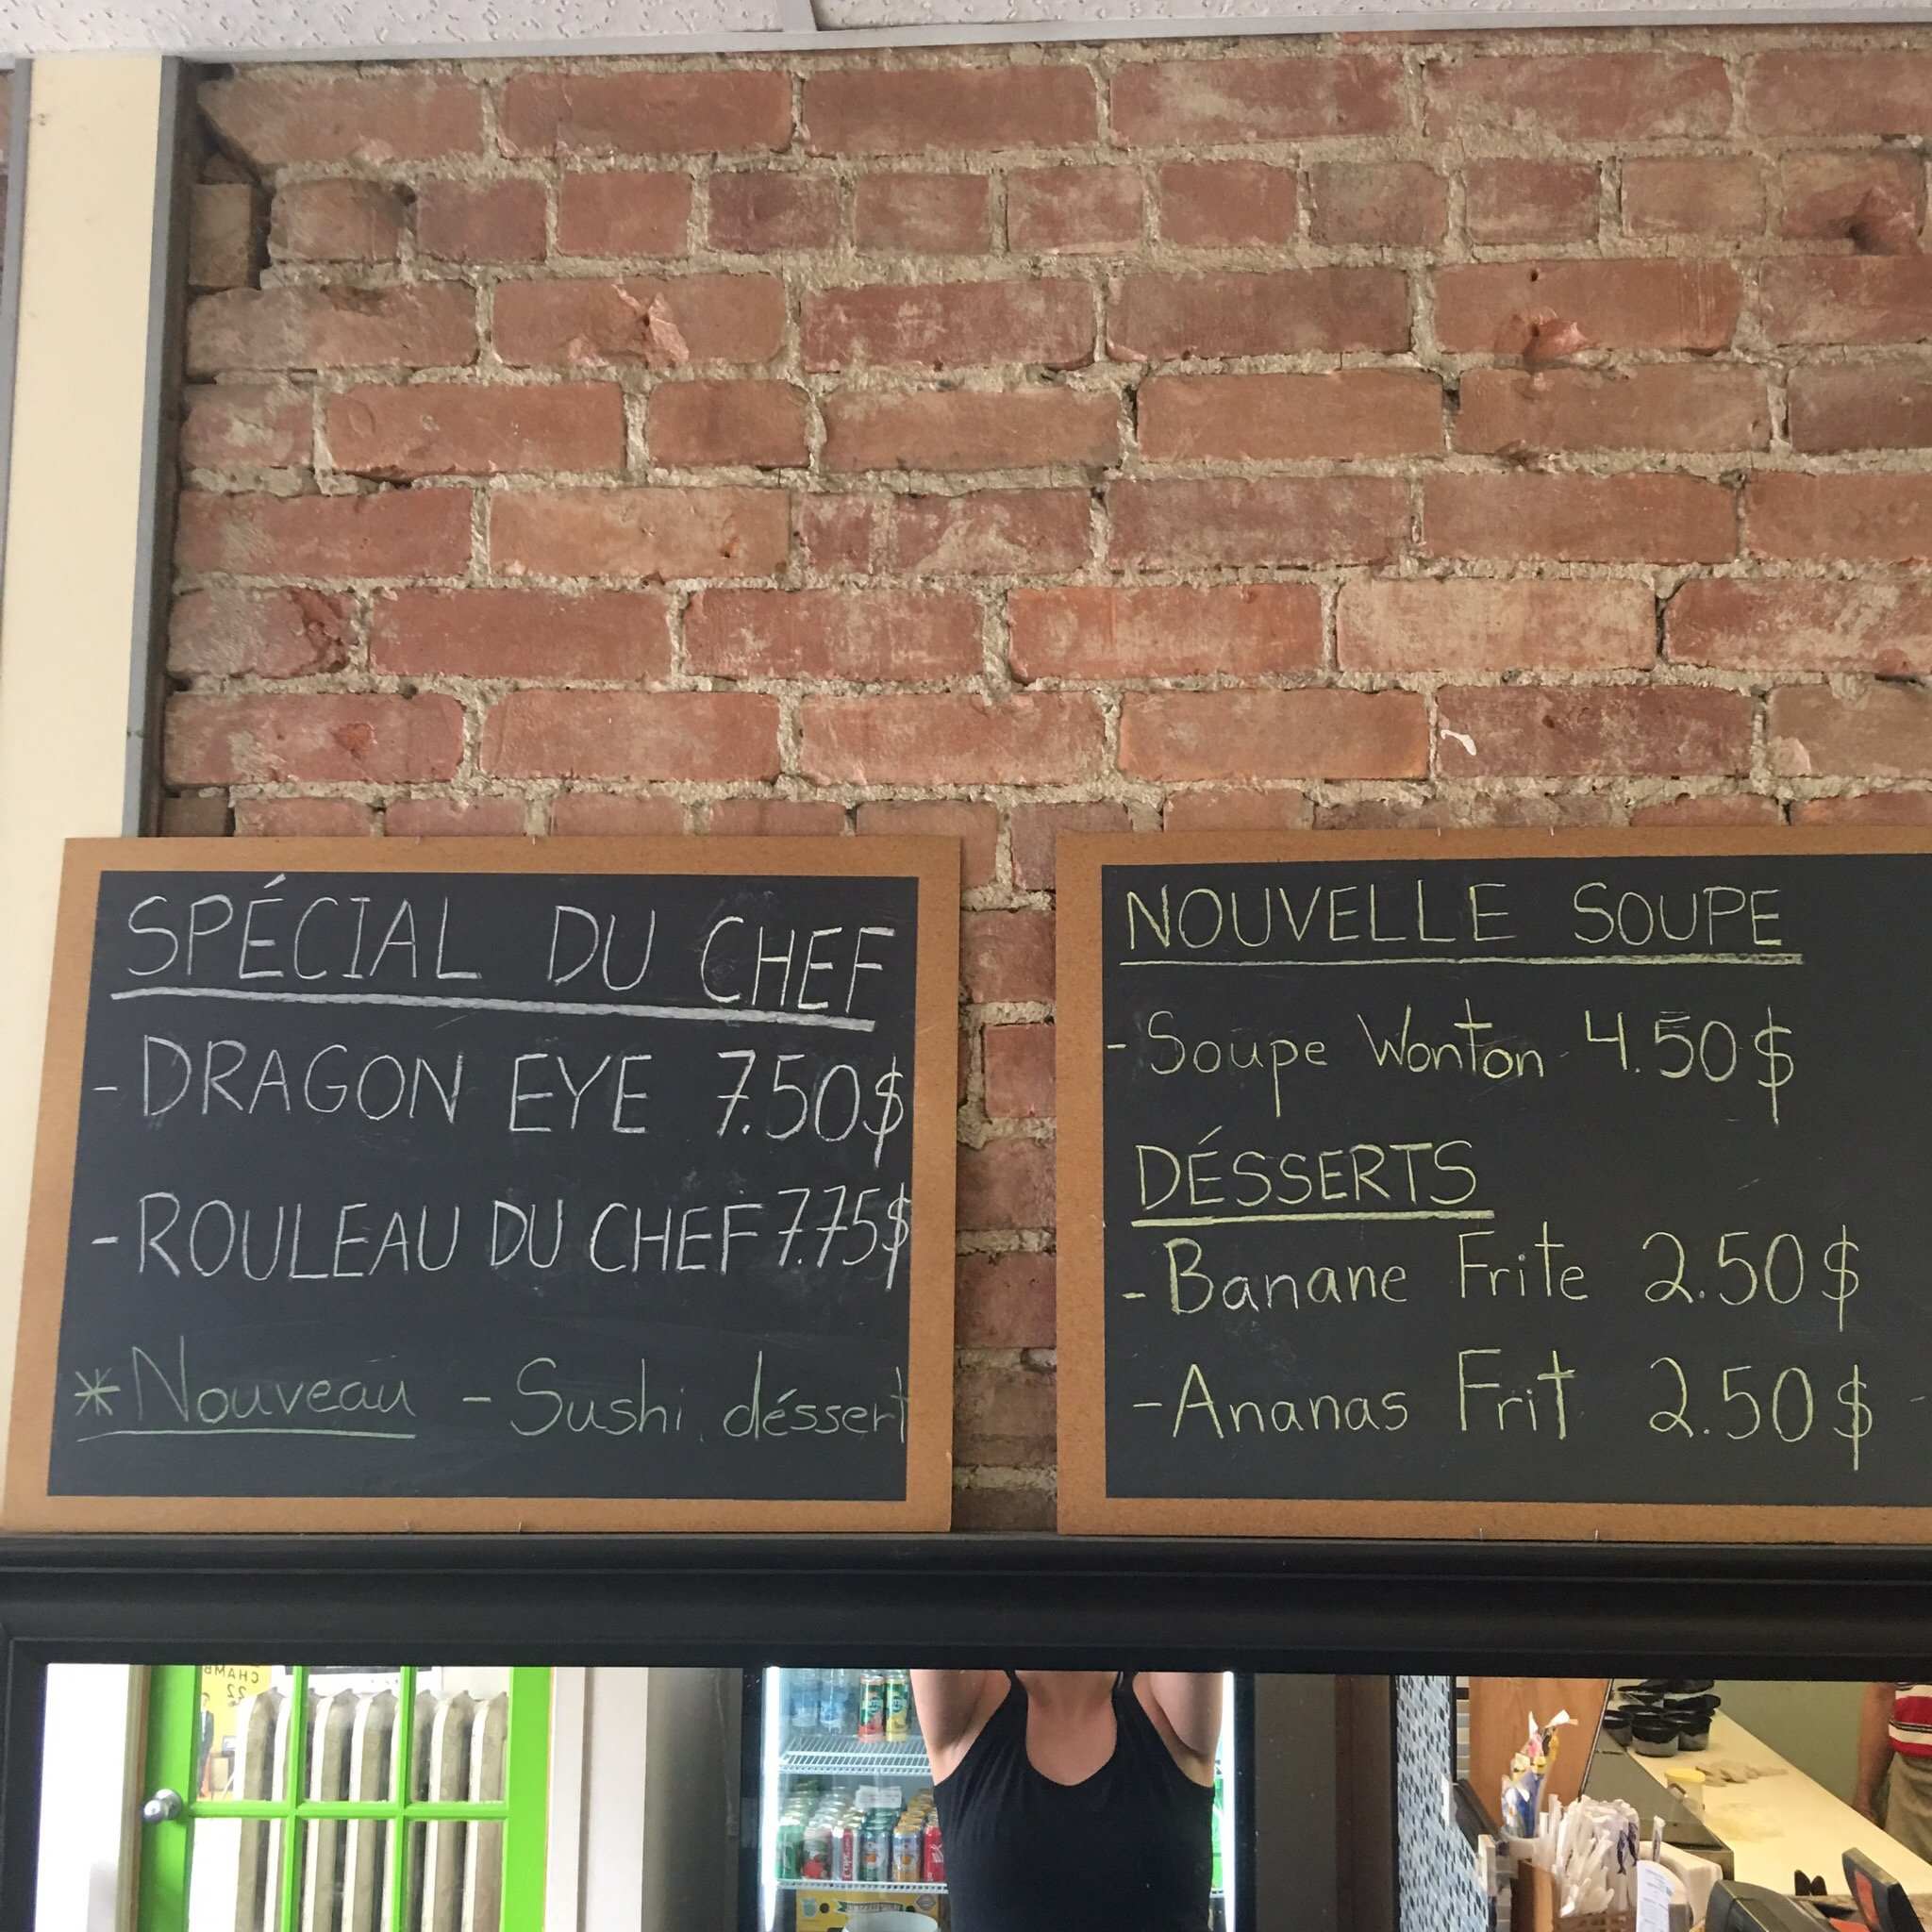 SPÉCIAL DU CHEF
- DRAGON EYE 7.50$
- ROULEAU DU CHEF 7.75$
* Nouveau - Sushi déssert
NOUVELLE SOUPE
- Soupe Wonton 4.50$
DÉSSERTS
- Banane Frite 2.50$
- Ananas Frit 2.50$
CHAMB
22